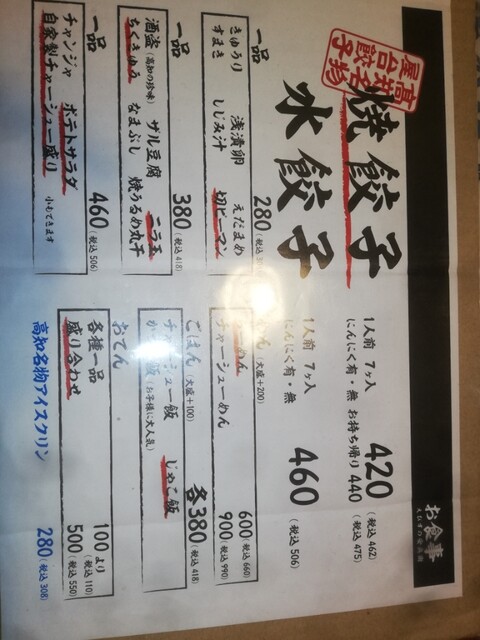 お食事
高知名物
屋台餃子
焼餃子
1人前 7ヶ入 420 (税込 462)
にんにく有・無 お持ち帰り 440 (税込 475)
水餃子
1人前 7ヶ入 460 (税込 506)
にんにく有・無
一品 280
きゅうり 浅漬卵 えだまめ
すまき しじみ汁
一品 380 (税込 418)
酒盗 (高知の珍味) ザル豆腐 ニラ玉
ちくきゅう なまぶし 焼うるめ丸干
一品 460 (税込 506)
チャンジャ ポテトサラダ
自家製チャーシュー盛り 小もできます
(大盛+200) 600 (税込 660)
チャーシューめん 900 (税込 990)
ごはん (大盛+100) 各380 (税込 418)
チャーシュー飯 じゃこ飯
(お子様に大人気)
おでん
各種一品 100より (税込 110)
盛り合わせ 500 (税込 550)
高知名物アイスクリン 280 (税込 308)